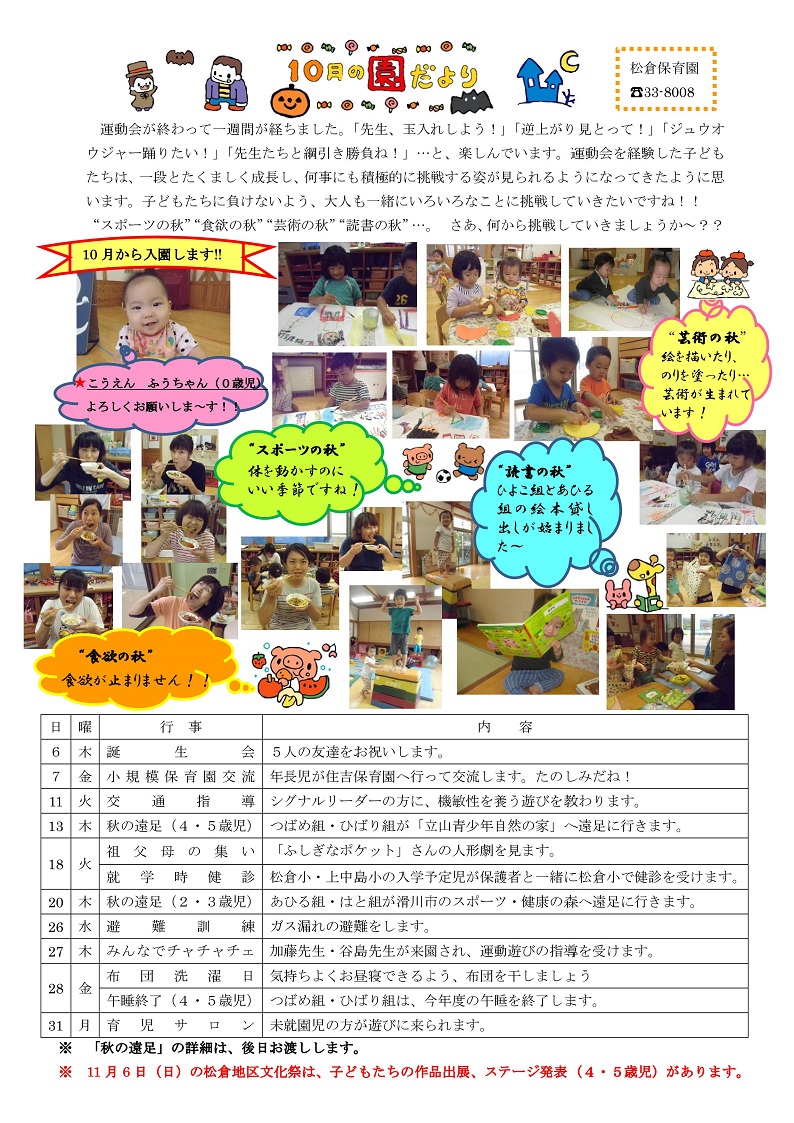 10月の園だより
松倉保育園
☎33-8008
運動会が終わって一週間が経ちました。「先生、玉入れしよう！」「逆上がり見とって！」「ジュウオ
ウジャー踊りたい！」「先生たちと綱引き勝負ね！」…と、楽しんでいます。運動会を経験した子ども
たちは、一段とたくましく成長し、何事にも積極的に挑戦する姿が見られるようになってきたように思
います。子どもたちに負けないよう、大人も一緒にいろいろなことに挑戦していきたいですね！！
“スポーツの秋”“食欲の秋”“芸術の秋”“読書の秋”…。　さあ、何から挑戦していきましょうか～？？
10月から入園します!!
★こうえん　ふうちゃん（０歳児）
よろしくお願いしま～す！！
“芸術の秋”
絵を描いたり、
のりを塗ったり…
芸術が生まれて
います！
“スポーツの秋”
体を動かすのに
いい季節ですね！
“読書の秋”
ひよこ組とあひる
組の絵本貸し
出しが始まりまし
た～
“食欲の秋”
食欲が止まりません！！
日 曜 行事 内容
6 木 誕生会 ５人の友達をお祝いします。
7 金 小規模保育園交流 年長児が住吉保育園へ行って交流します。たのしみだね！
11 火 交通指導 シグナルリーダーの方に、機敏性を養う遊びを教わります。
13 木 秋の遠足（４・５歳児） つばめ組・ひばり組が「立山青少年自然の家」へ遠足に行きます。
18 火 祖父母の集い 「ふしぎなポケット」さんの人形劇を見ます。
就学時健診 松倉小・上中島小の入学予定児が保護者と一緒に松倉小で健診を受けます。
20 木 秋の遠足（２・３歳児） あひる組・はと組が滑川市のスポーツ・健康の森へ遠足に行きます。
26 水 避難訓練 ガス漏れの避難をします。
27 木 みんなでチャチャチェ 加藤先生・谷島先生が来園され、運動遊びの指導を受けます。
28 金 布団洗濯日 気持ちよくお昼寝できるよう、布団を干しましょう
午睡終了（４・５歳児） つばめ組・ひばり組は、今年度の午睡を終了します。
31 月 育児サロン 未就園児の方が遊びに来られます。
※　「秋の遠足」の詳細は、後日お渡しします。
※　11月6日（日）の松倉地区文化祭は、子どもたちの作品出展、ステージ発表（４・５歳児）があります。